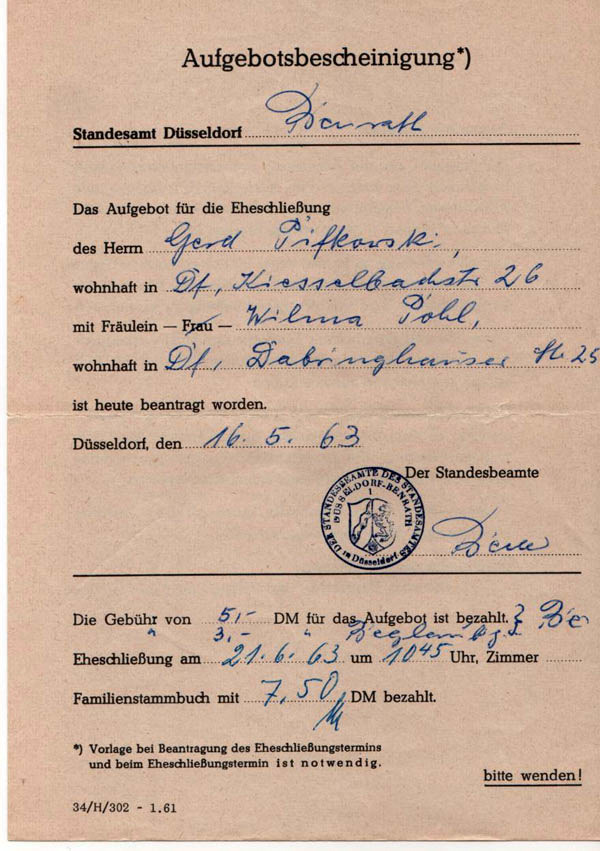 Aufgebotsbescheinigung*)
Standesamt Düsseldorf Benrath
Das Aufgebot für die Eheschließung
des Herrn Gerd Pifkowski,
wohnhaft in Df, Kiesselbachstr 26
mit Fräulein — Frau — Wilma Pohl,
wohnhaft in Df, Dabringhauser Str 25
ist heute beantragt worden.
Düsseldorf, den 16. 5. 63
Der Standesbeamte
DER STANDESBEAMTE DES STANDESAMTES
DÜSSELDORF-BENRATH
1
in Düsseldorf
Die Gebühr von 5,- DM für das Aufgebot ist bezahlt.
" 3,- "
Eheschließung am 21.6.63 um 1045 Uhr, Zimmer
Familienstammbuch mit 7,50 DM bezahlt.
*) Vorlage bei Beantragung des Eheschließungstermins
und beim Eheschließungstermin ist notwendig.
bitte wenden!
34/H/302 - 1.61